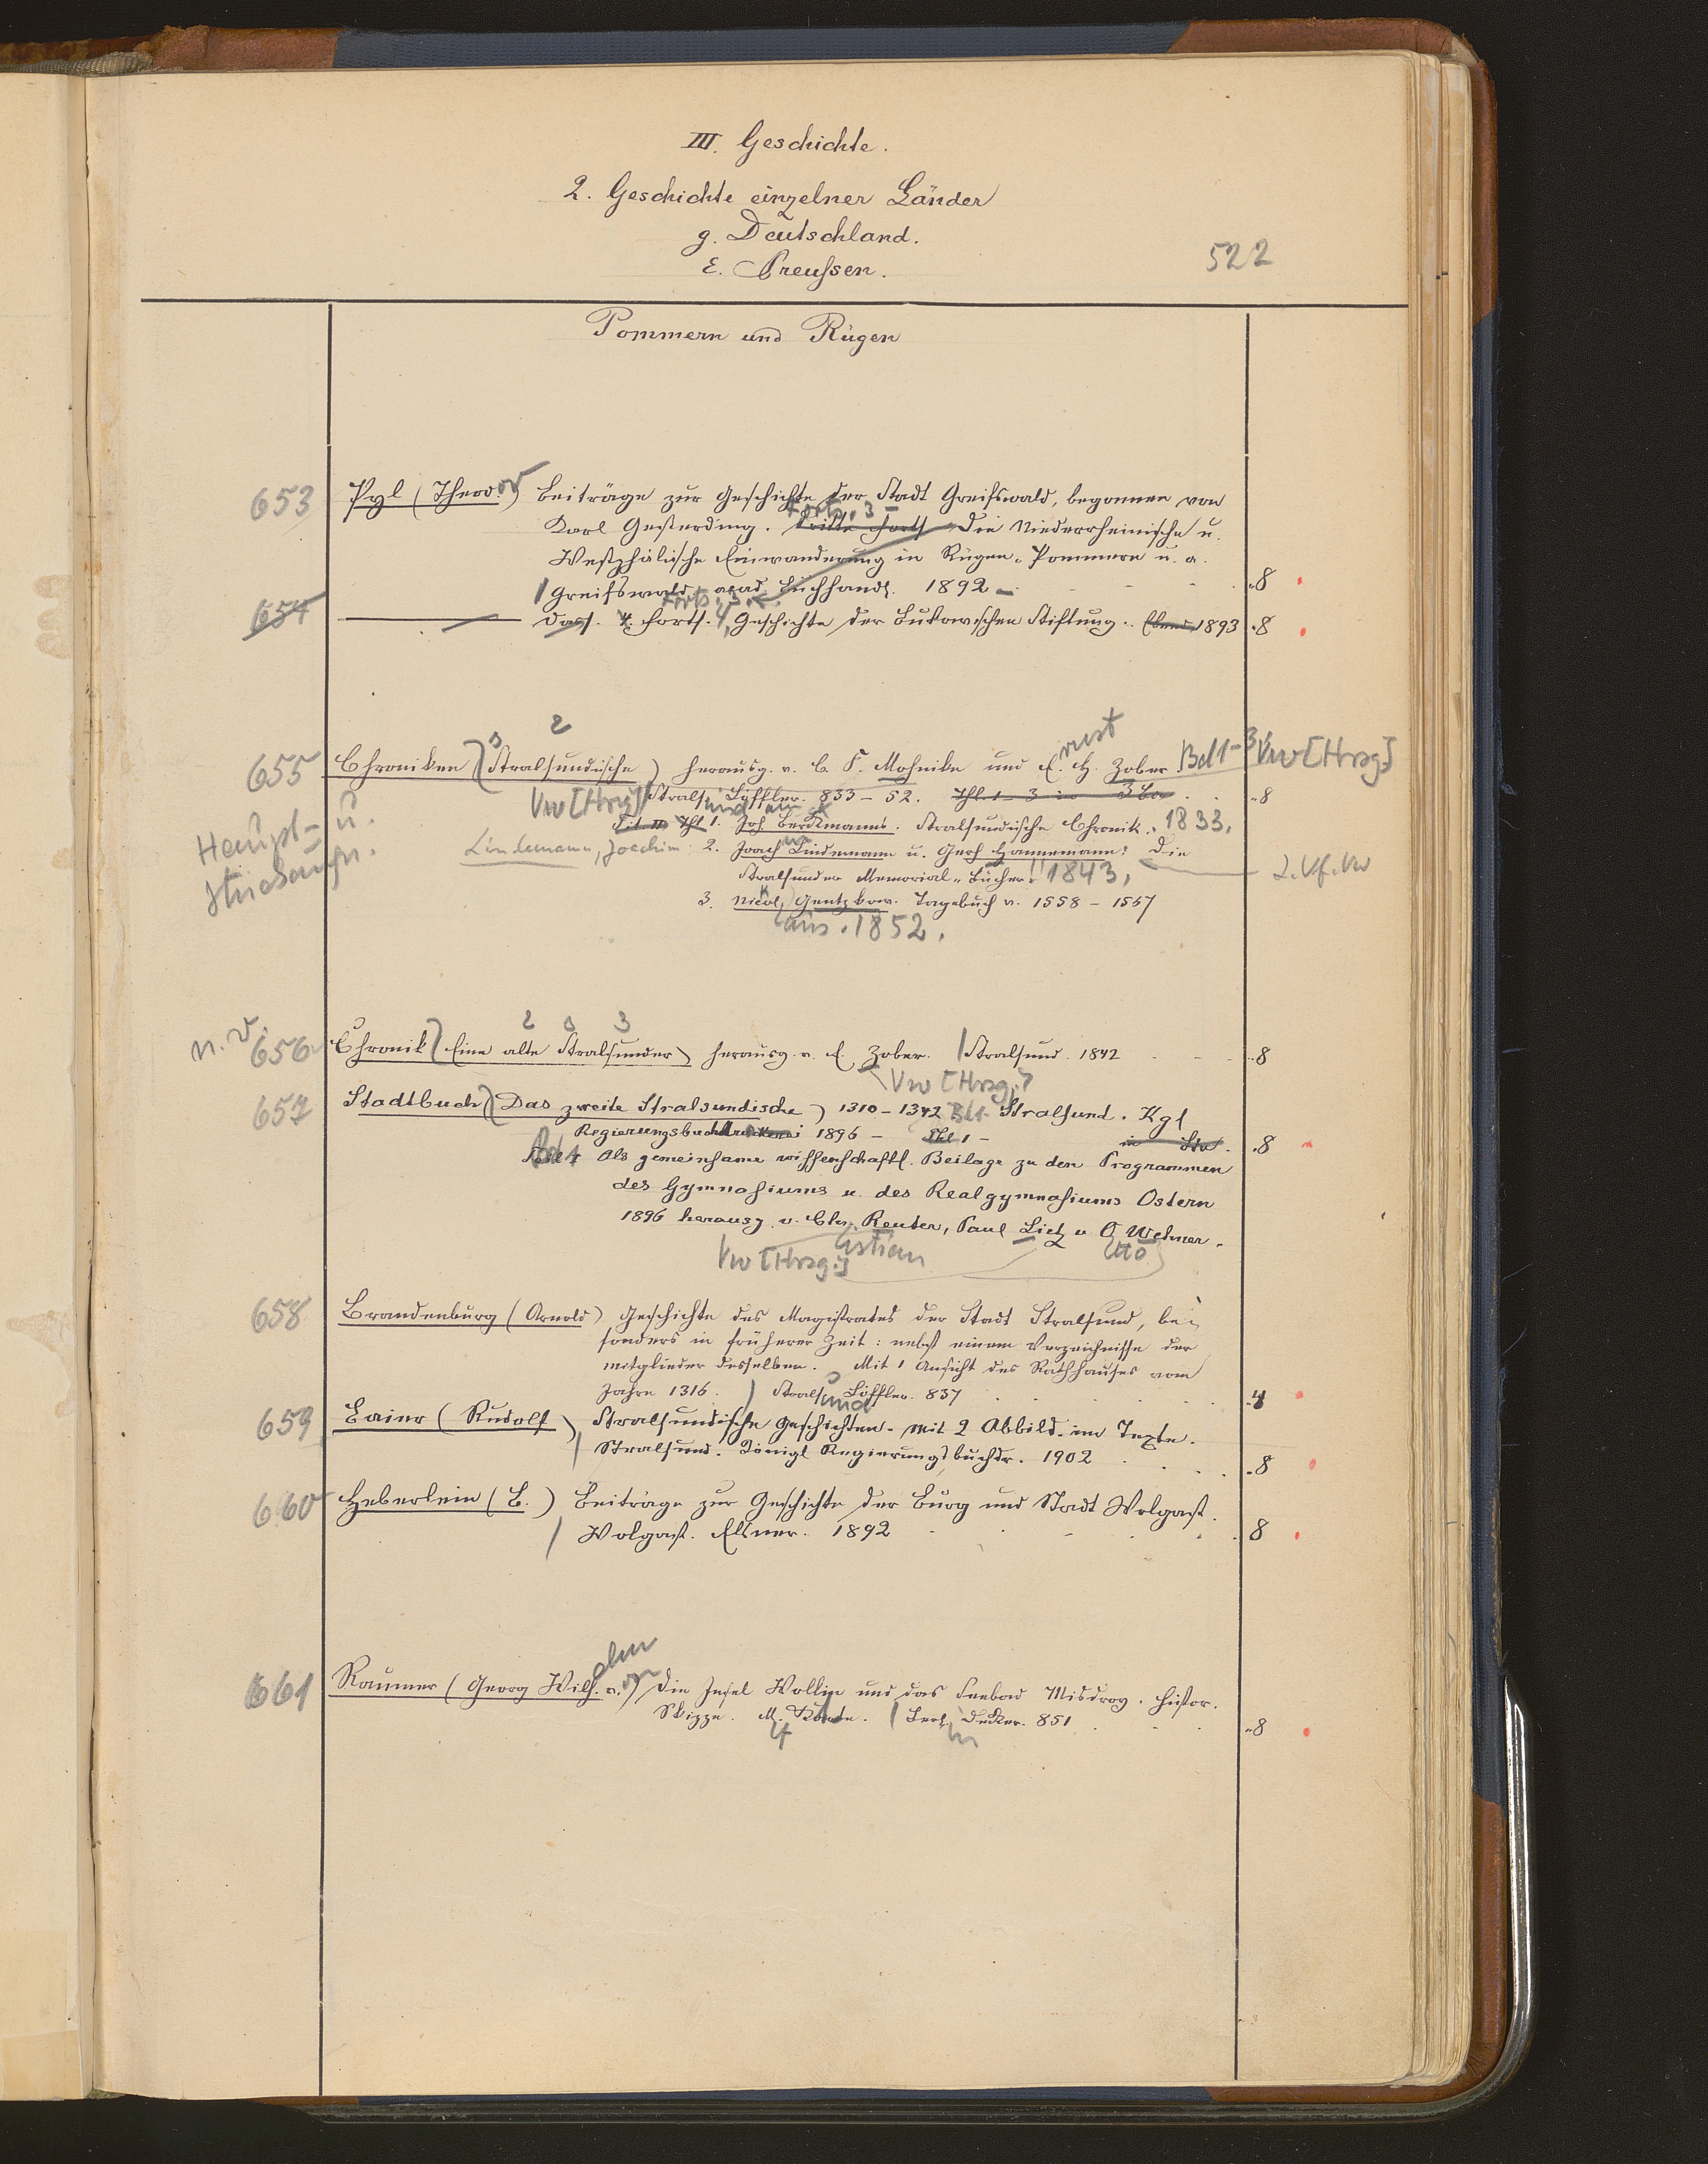 III. Geschichte.
2. Geschichte einzelner Länder
g. Deutschland.
522
ε. Preußen.
Pommern und Rügen
653 Pyl (Theod.or) Beiträge zur Geschichte der Stadt Greifswald, begonnen von
Karl Gesterding. Dritte Forts. Forts. 3 - Die Niederrheinische u.
Westphälische Einwanderung in Rügen-Pommern u. a.
Greifswald acad. Buchhandl. 1892 - 8
Forts. 3.
654 — Dass. 4. Forts. 4, Geschichte der Bukowschen Stiftung. Ebend. 1893 8
2 rest
655 Chroniken (Stralsundische) herausg. v. G. F. Mohnike und E. H. Zober. Bd 1-3 Vw [Hrsg]
Vw [Hrsg] Stralsund Löffler. 833-52. Thl. 1-3 in 3 Bd 8
Haupt- u. Tit. Thl 1. Joh Berckmann's. Stralsundische Chronik. 1833.
Lindemann, Joachim 2. Joach Lindemann u. Gerh Hannemann: Die
Stralsunder Memorial-Bücher. 1843. 2. Vf. Vw
3. Nicol Gentzkow. Tagebuch v. 1558 - 1567
aus. 1852.
2 3
n. v. 656 Chronik (Eine alte Stralsunder) herausg. v. E. Zober. Stralsund. 1842 8
Vw [Hrsg.]
657 Stadtbuch (Das zweite Stralsundische) 1310-1342 Bd 1 Stralsund. Kgl
Regierungsbuchdruckerei 1896 - Thl 1 - in Bd. 8
Bd 1 Als gemeinsame wissenschaftl. Beilage zu den Programmen
des Gymnasiums u. des Realgymnasiums Ostern
1896 herausg. v. Chr. Reuter, Paul Lietz u O. Wehner.
Vw [Hrsg.] istian tto
658 Brandenburg (Arnold) Geschichte des Magistrates der Stadt Stralsund, be-
sonders in früherer Zeit: nebst einem Verzeichnisse der
Mitglieder desselben. Mit 1 Ansicht des Rathhauses vom
Jahre 1316. Stralsund Löffler. 837 4
659 Baier (Rudolf) Stralsundische Geschichten. Mit 2 Abbild. im Texte.
Stralsund. Königl Regierungsbuchdr. 1902 8
660 Heberlein (B.) Beiträge zur Geschichte der Burg und Stadt Wolgast.
Wolgast. Elsner. 1892 8
elm
661 Raumer (Georg Wilh. v.on) Die Insel Wollin und das Seebad Misdroy. Histor.
Skizze. M. Karte. Berlin Decker. 851 8